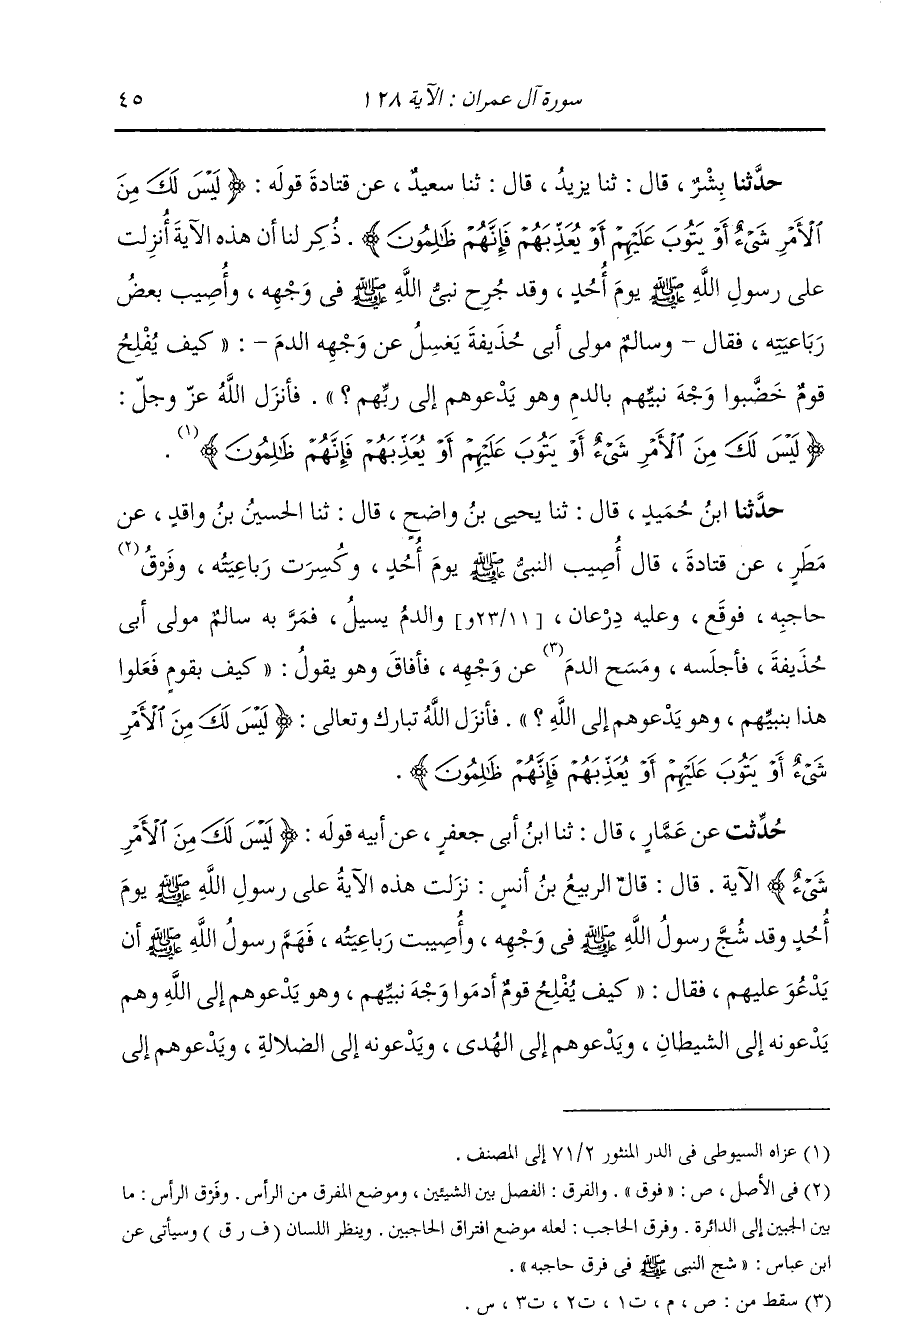 سورة آل عمران : الآية ١٢٨ ٤٥
حدَّثنا بِشْرٌ ، قال : ثنا يزيدُ ، قال : ثنا سعيدٌ ، عن قتادةَ قولَه : ﴿ لَيْسَ لَكَ مِنَ
ٱلْأَمْرِ شَىْءٌ أَوْ يَتُوبَ عَلَيْهِمْ أَوْ يُعَذِّبَهُمْ فَإِنَّهُمْ ظَٰلِمُونَ ﴾ . ذُكِر لنا أن هذه الآيةَ أُنزِلت
على رسولِ اللَّهِ ﷺ يومَ أُحُدٍ ، وقد جُرِح نبىُّ اللَّهِ ﷺ فى وَجْهِه ، وأُصِيب بعضُ
رَبَاعيَتِه ، فقال – وسالمٌ مولى أبى حُذَيفةَ يَغسِلُ عن وَجْهِه الدمَ – : « كيف يُفْلِحُ
قومٌ خَضَّبوا وَجْهَ نبيِّهم بالدمِ وهو يَدْعوهم إلى ربِّهم ؟ » . فأنزَل اللَّهُ عزّ وجلّ :
﴿ لَيْسَ لَكَ مِنَ ٱلْأَمْرِ شَىْءٌ أَوْ يَتُوبَ عَلَيْهِمْ أَوْ يُعَذِّبَهُمْ فَإِنَّهُمْ ظَٰلِمُونَ ﴾(١) .
حدَّثنا ابنُ حُمَيدٍ ، قال : ثنا يحيى بنُ واضحٍ ، قال : ثنا الحسينُ بنُ واقدٍ ، عن
مَطَرٍ ، عن قتادةَ ، قال أُصِيب النبىُّ ﷺ يومَ أُحُدٍ ، وكُسِرَت رَبَاعِيَتُه ، وفَرْقُ(٢)
حاجبِه ، فوقَع ، وعليه دِرْعان ، [٢٣/١١و] والدمُ يسيلُ ، فمَرَّ به سالمٌ مولى أبى
حُذَيفةَ ، فأجلَسه ، ومَسَح الدمَ(٣) عن وَجْهِه ، فأفاقَ وهو يقولُ : « كيف بقومٍ فَعَلوا
هذا بنبيِّهم ، وهو يَدْعوهم إلى اللَّهِ ؟ » . فأنزَل اللَّهُ تبارك وتعالى : ﴿ لَيْسَ لَكَ مِنَ ٱلْأَمْرِ
شَىْءٌ أَوْ يَتُوبَ عَلَيْهِمْ أَوْ يُعَذِّبَهُمْ فَإِنَّهُمْ ظَٰلِمُونَ ﴾ .
حُدِّثت عن عَمَّارٍ ، قال : ثنا ابنُ أبى جعفرٍ ، عن أبيه قولَه : ﴿ لَيْسَ لَكَ مِنَ ٱلْأَمْرِ
شَىْءٌ ﴾ الآية . قال : قال الربيعُ بنُ أنسٍ : نزَلت هذه الآيةُ على رسولِ اللَّهِ ﷺ يومَ
أُحُدٍ وقد شُجَّ رسولُ اللَّهِ ﷺ فى وَجْهِه ، وأُصِيبت رَبَاعيَتُه ، فهَمَّ رسولُ اللَّهِ ﷺ أن
يَدْعُوَ عليهم ، فقال : « كيف يُفْلِحُ قومٌ أدمَوا وَجْهَ نبيِّهم ، وهو يَدْعوهم إلى اللَّهِ وهم
يَدْعونه إلى الشيطانِ ، ويَدْعوهم إلى الهُدى ، ويَدْعونه إلى الضلالةِ ، ويَدْعوهم إلى
(١) عزاه السيوطى فى الدر المنثور ٧١/٢ إلى المصنف .
(٢) فى الأصل ، ص : « فوق » . والفرق : الفصل بين الشيئين ، وموضع المفرق من الرأس . وفَرْق الرأس : ما
بين الجبين إلى الدائرة . وفرق الحاجب : لعله موضع افتراق الحاجبين . وينظر اللسان ( ف ر ق ) وسيأتى عن
ابن عباس : « شج النبى ﷺ فى فرق حاجبه » .
(٣) سقط من : ص ، م ، ت١ ، ت٢ ، ت٣ ، س .